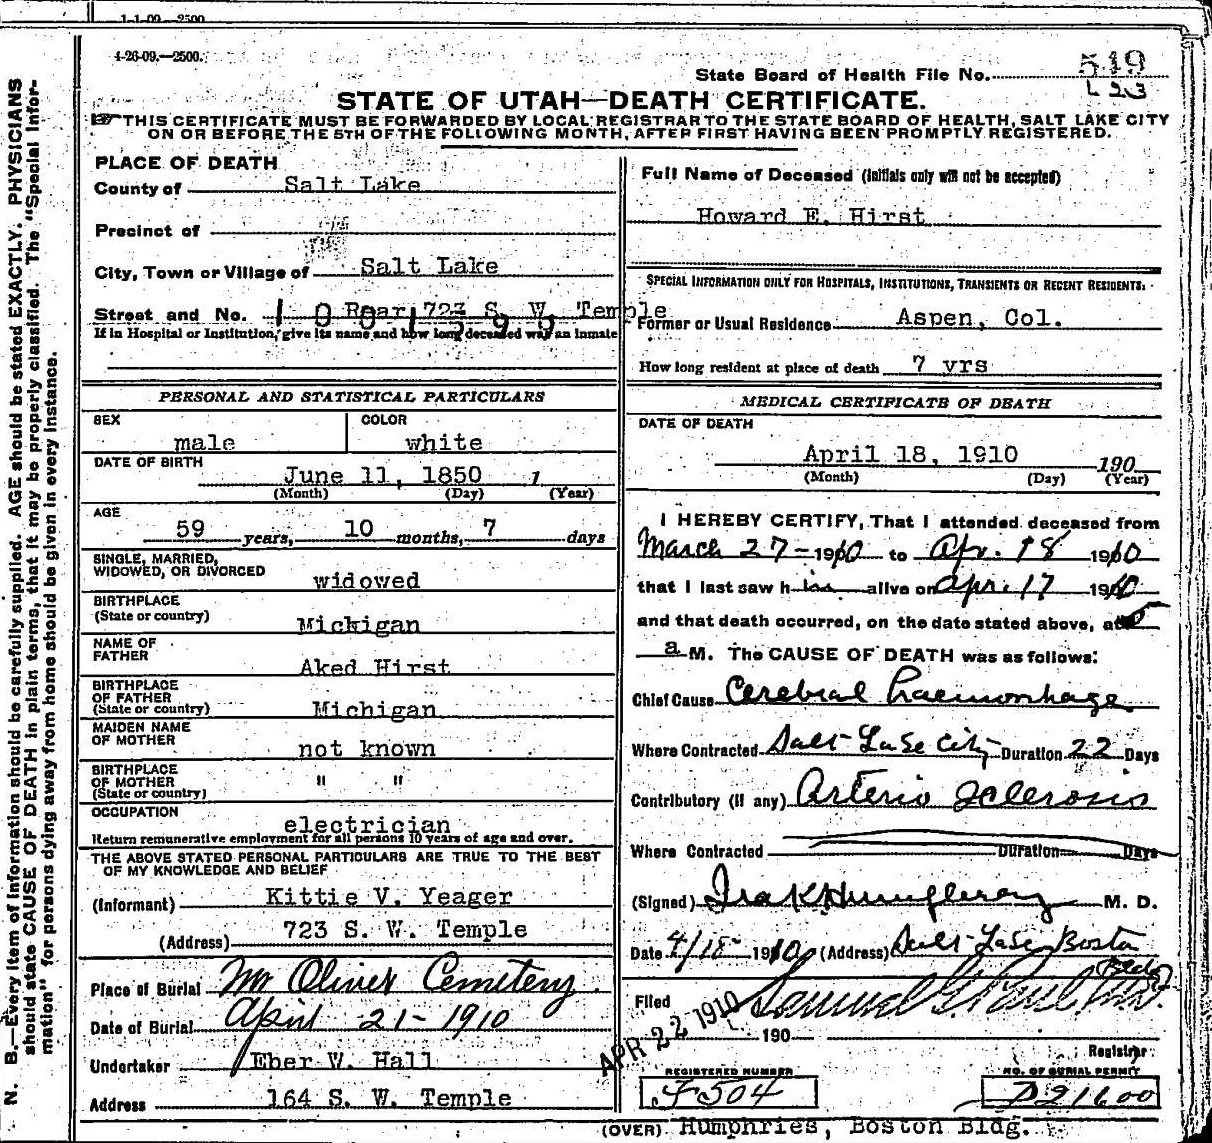 1-1-09—2500
4-26-09.—2500.
State Board of Health File No. 549
L 23
STATE OF UTAH—DEATH CERTIFICATE.
THIS CERTIFICATE MUST BE FORWARDED BY LOCAL REGISTRAR TO THE STATE BOARD OF HEALTH, SALT LAKE CITY
ON OR BEFORE THE 5TH OF THE FOLLOWING MONTH, AFTER FIRST HAVING BEEN PROMPTLY REGISTERED.
N. B.—Every item of information should be carefully supplied. AGE should be stated EXACTLY. PHYSICIANS
should state CAUSE OF DEATH in plain terms, that it may be properly classified. The "Special Infor-
mation" for persons dying away from home should be given in every instance.
PLACE OF DEATH
County of Salt Lake
Precinct of
City, Town or Village of Salt Lake
Street and No. Rear 723 S. W. Temple
1001599
If in Hospital or Institution, give its name and how long deceased was an inmate
PERSONAL AND STATISTICAL PARTICULARS
SEX male COLOR white
DATE OF BIRTH
June 11, 1850 1
(Month) (Day) (Year)
AGE
59 years, 10 months, 7 days
SINGLE, MARRIED,
WIDOWED, OR DIVORCED widowed
BIRTHPLACE
(State or country) Mickigan
NAME OF
FATHER Aked Hirst
BIRTHPLACE
OF FATHER
(State or country) Michigan
MAIDEN NAME
OF MOTHER not known
BIRTHPLACE
OF MOTHER " "
(State or country)
OCCUPATION
electrician
Return remunerative employment for all persons 10 years of age and over.
THE ABOVE STATED PERSONAL PARTICULARS ARE TRUE TO THE BEST
OF MY KNOWLEDGE AND BELIEF
(Informant) Kittie V. Yeager
(Address) 723 S. W. Temple
Place of Burial Mt Olivet Cemetery
Date of Burial April 21-1910
Undertaker Eber W. Hall
Address 164 S. W. Temple
Full Name of Deceased (Initials only will not be accepted)
Howard E. Hirst
SPECIAL INFORMATION ONLY FOR HOSPITALS, INSTITUTIONS, TRANSIENTS OR RECENT RESIDENTS.
Former or Usual Residence Aspen, Col.
How long resident at place of death 7 yrs
MEDICAL CERTIFICATE OF DEATH
DATE OF DEATH
April 18, 1910 190
(Month) (Day) (Year)
I HEREBY CERTIFY, That I attended deceased from
March 27-1910 to Apr. 18 1910
that I last saw him alive on Apr. 17 1910
and that death occurred, on the date stated above, at 5
a M. The CAUSE OF DEATH was as follows:
Chief Cause Cerebral haemorrhage
Where Contracted Salt Lake City Duration 22 Days
Contributory (if any) Arterio Sclerosis
Where Contracted Duration Days
(Signed) Ira K Humphrey M. D.
Date 4/18 1910 (Address) Salt Lake Boston
Bldg
Filed APR 22 1910 190 Samuel G. Paul
Registrar
REGISTERED NUMBER
F504
NO. OF BURIAL PERMIT
D21600
(OVER) Humphries, Boston Bldg.